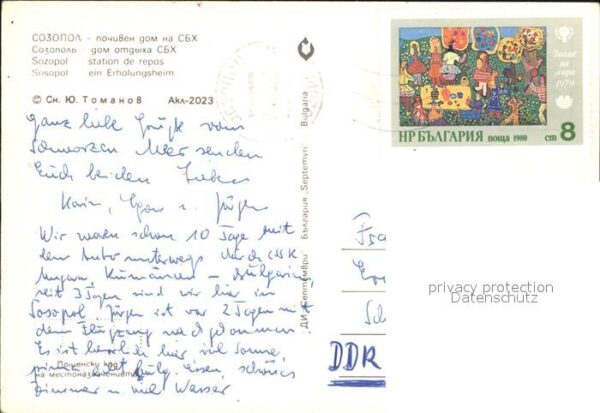 СОЗОПОЛ - почивен дом на СБХ
Созополь - дом отдыха СБХ
Sozopol station de repos
Sosopol ein Erholungsheim
© Сн. Ю. Томанов Акл-2023
ДИ „Септември" България „Septemvri" Bulgaria
Знаме
на
мира
1979
НР БЪЛГАРИЯ поща 1980 ст 8
Ganz liebe Grüße vom
Schwarzen Meer senden
Euch beiden Lieben
Karin, u. Jürgen
Wir waren schon 10 Tage mit
dem Auto unterwegs durch ČSSR
Ungarn, Rumänien - Bulgarien,
seit 3 Tagen sind wir hier in
Sosopol. Jürgen ist vor 2 Tagen mit
dem Flugzeug nachgekommen
Es ist herrlich hier, viel Sonne,
prima essen, schönes
Zimmer u. viel Wasser
Пощенски код
на местоназначението
Fra
Sch
DDR
privacy protection
Datenschutz